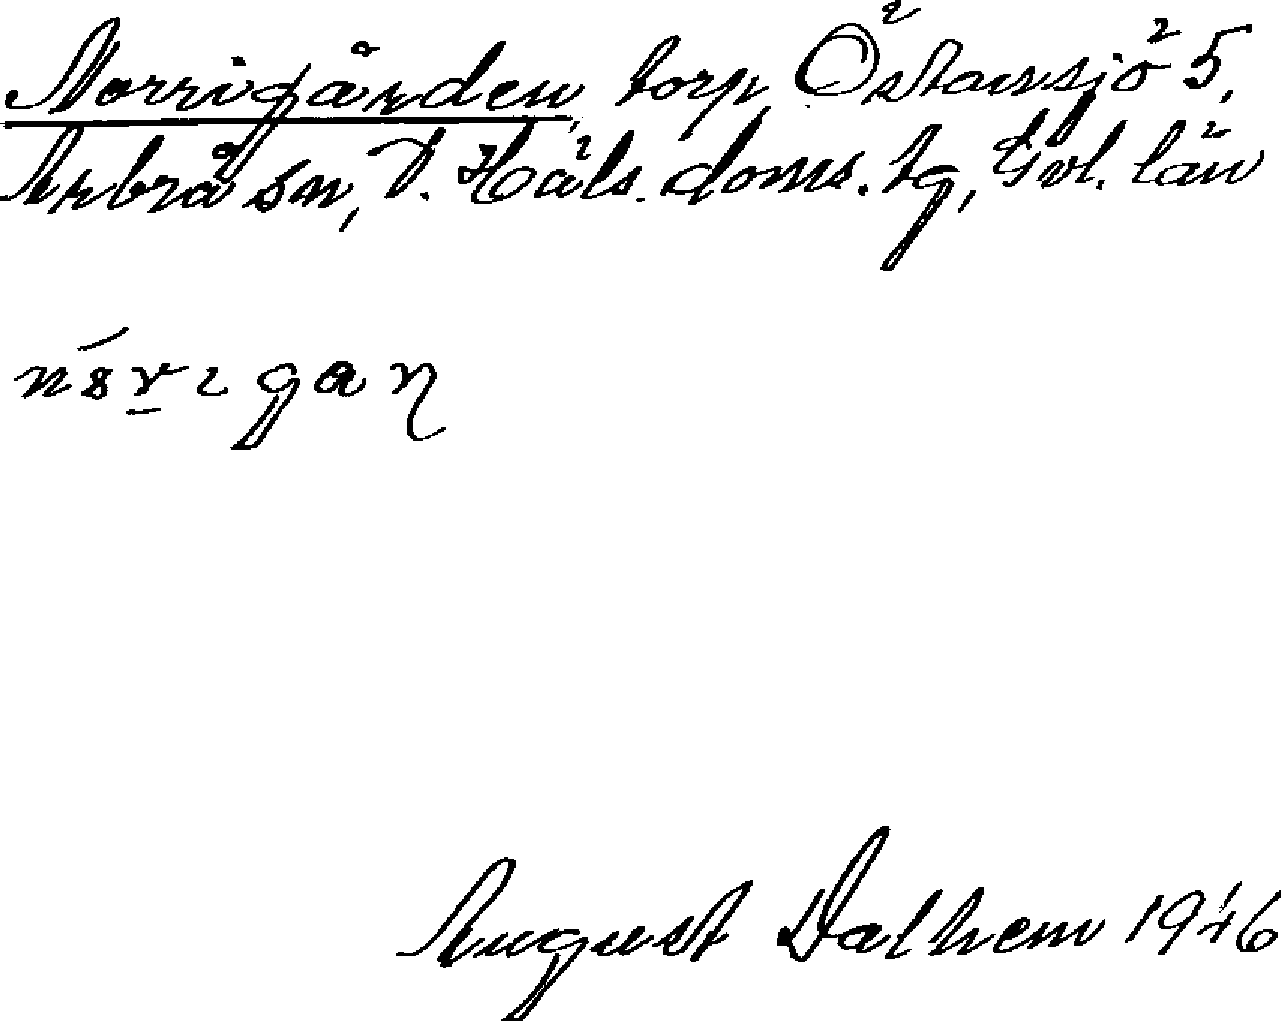 Norrigården, torp Östansjö 5,
Arbrå sn, V. Häls. doms. tg, Gvl. län
August Dalhem 1946